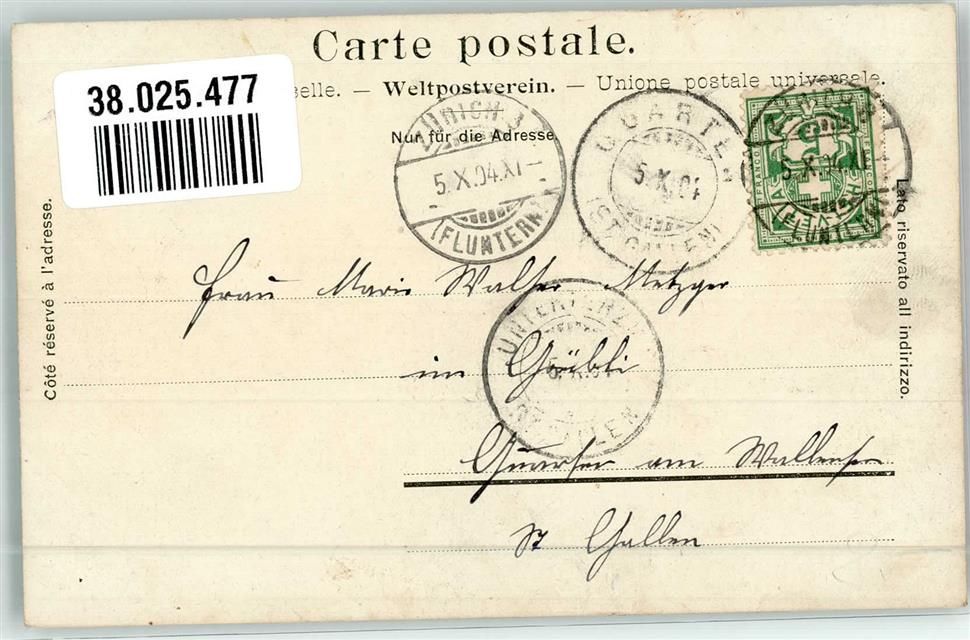 Carte postale.
38.025.477
selle. — Weltpostverein. — Unione postale universale.
Nur für die Adresse
Côté réservé à l'adresse.
Lato riservato all indirizzo.
ZÜRICH 3
5.X.04.XI-
(FLUNTERN)
QUARTEN
5.X.04
(ST. GALLEN)
FRANCO
Frau Marie Walser Metzger
im Gräbli
UNTERTERZEN
5.X.04
Quarten am Wallensee
St Gallen